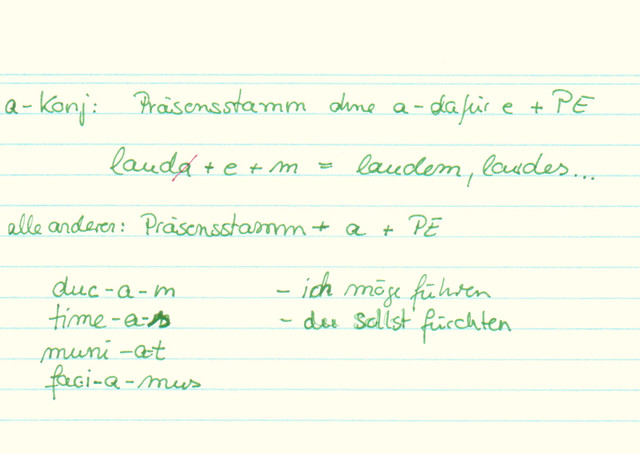 a-Konj: Präsensstamm ohne a-dafür e + PE
lauda + e + m = laudem, laudes...
alle anderen: Präsensstamm + a + PE
duc-a-m - ich möge führen
time-a-s - du sollst fürchten
muni-at
faci-a-mus